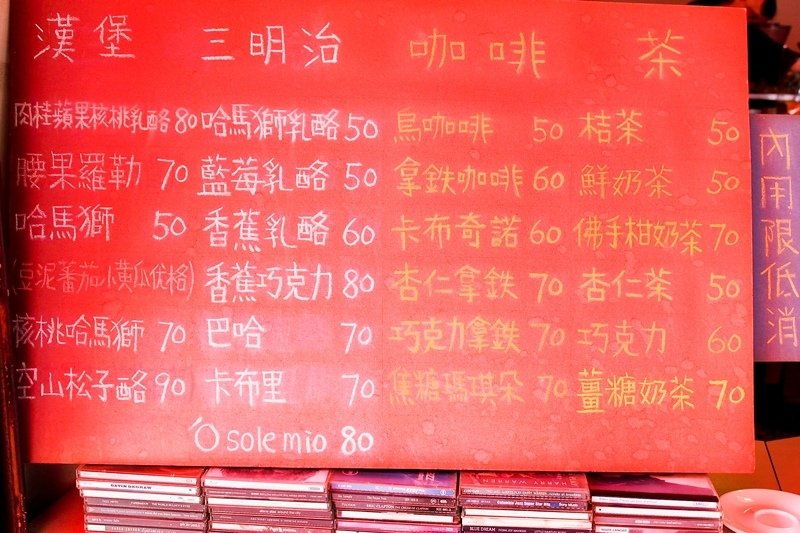 漢堡 三明治 咖啡 茶
肉桂蘋果核桃乳酪 80 哈馬獅乳酪 50 烏咖啡 50 桔茶 50
腰果羅勒 70 藍莓乳酪 50 拿鉄咖啡 60 鮮奶茶 50
哈馬獅 50 香蕉乳酪 60 卡布奇諾 60 佛手柑奶茶 70
(豆泥蕃茄小黃瓜优格) 香蕉巧克力 80 杏仁拿鉄 70 杏仁茶 50
核桃哈馬獅 70 巴哈 70 巧克力拿鉄 70 巧克力 60
空山松子酪 90 卡布里 70 焦糖瑪琪朵 70 薑糖奶茶 70
O sole mio 80
內用限低消
GAVIN DEGRAW
HARRY WARREN
ERIC CLAPTON
BLUE DREAM